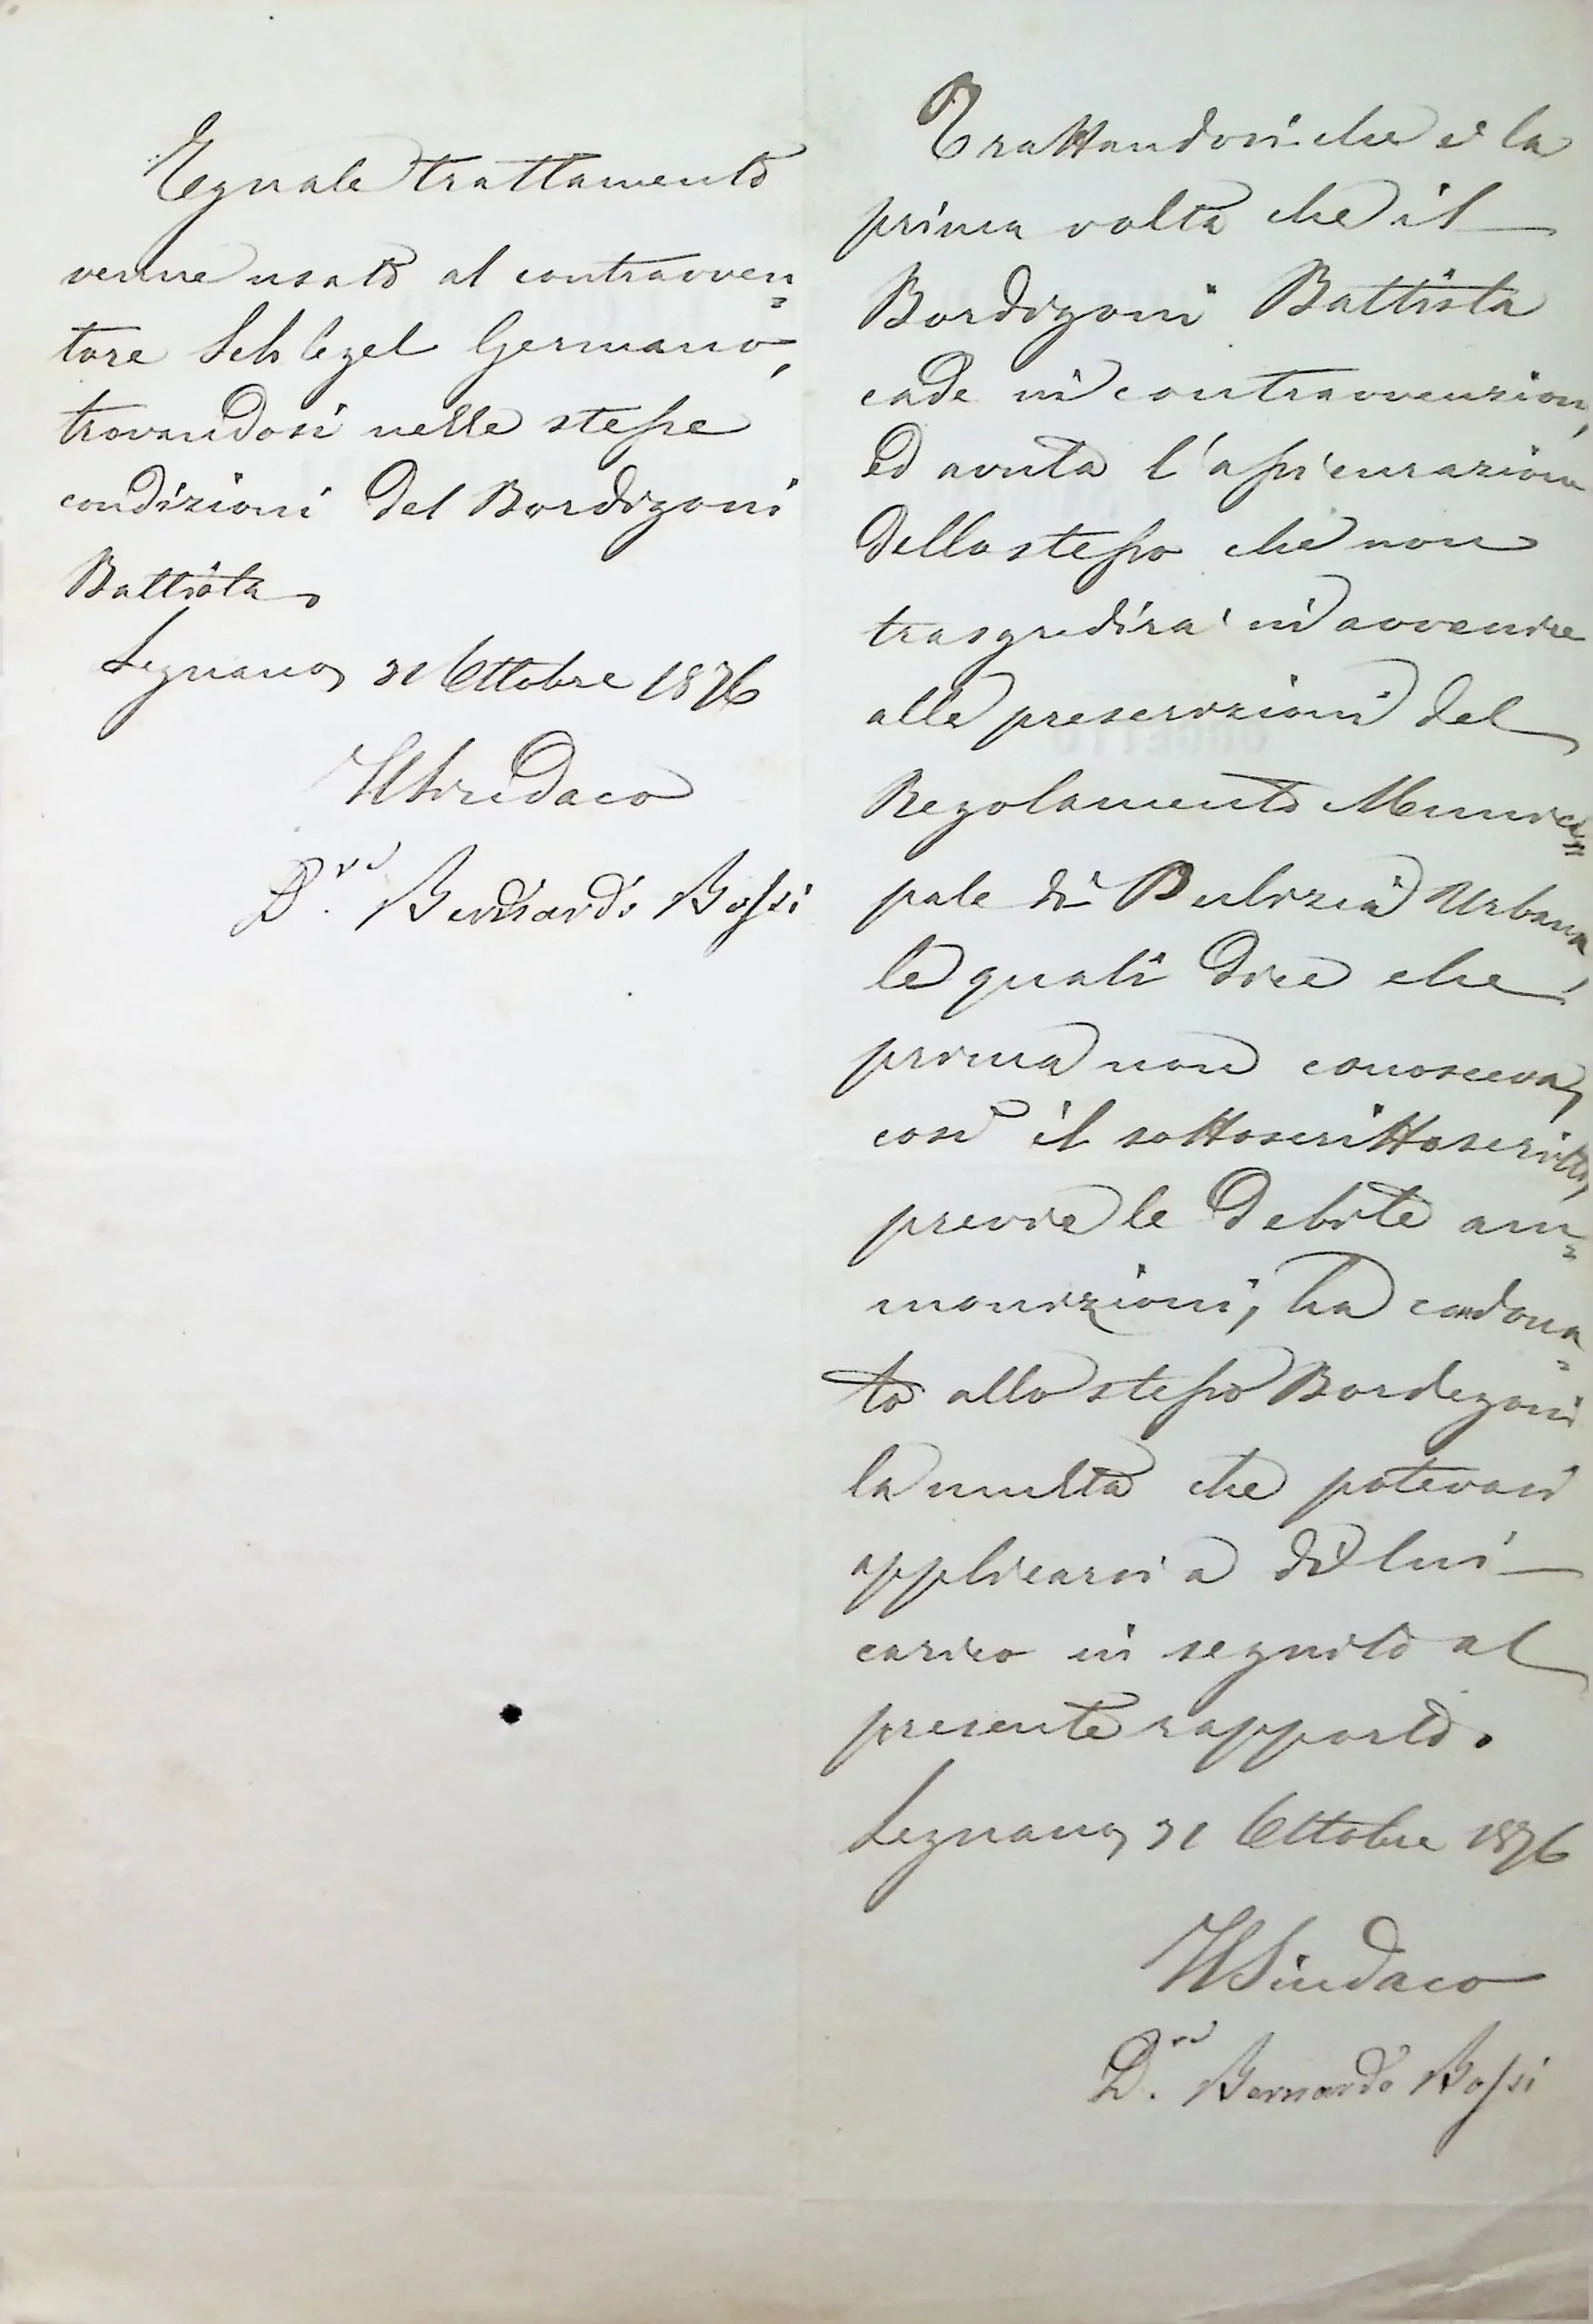 Eguale trattamento
venne usato al contravven=
tore Schlegel Germano,
trovandosi nelle stesse
condizioni del Bordigoni
Battista.
Legnano, 31 Ottobre 1876
Il Sindaco
D.re Bernardo Bossi
Trattandosi che è la
prima volta che il
Bordigoni Battista
cade in contravvenzione,
ed avuta l'assicurazione
dello stesso che non
trasgredirà in avvenire
alle prescrizioni del
Regolamento Munici=
pale di Pulizia Urbana,
le quali dice che
prima non conosceva,
così il sottoscrittoscritto,
previe le debite am=
monizioni, ha condona=
to allo stesso Bordegoni
la multa che potevasi
applicarsi a di lui
carico in seguito al
presente rapporto.
Legnano, 31 Ottobre 1876
Il Sindaco
D.re Bernardo Bossi